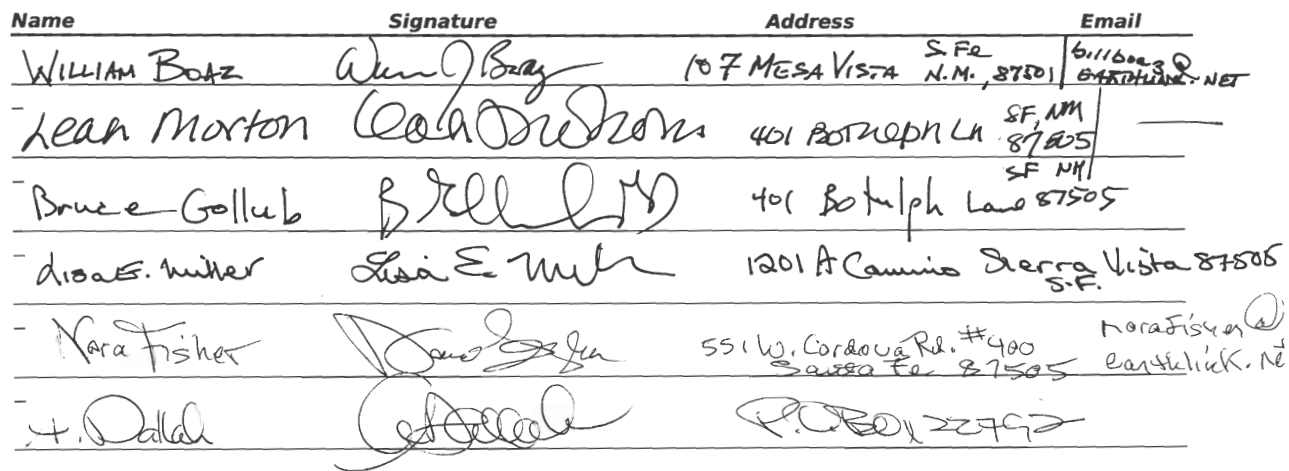 Name Signature Address Email
WILLIAM BOAZ Wm J Boaz 107 MESA VISTA S. Fe N.M., 87501 billboaz@EARTHLINK.NET
Leah Morton Leah Morton 401 Botulph Ln SF, NM 87505
Bruce Gollub B Gollub 401 Botulph Lane SF NM 87505
Lisa E. Miller Lisa E. Miller 1201 A Camino Sierra Vista 87505 S.F.
Nora Fisher Nora Fisher 551 W. Cordova Rd. #400 Santa Fe 87505 norafisher@earthlink.ne
A. Dallal P.O. Box 22792